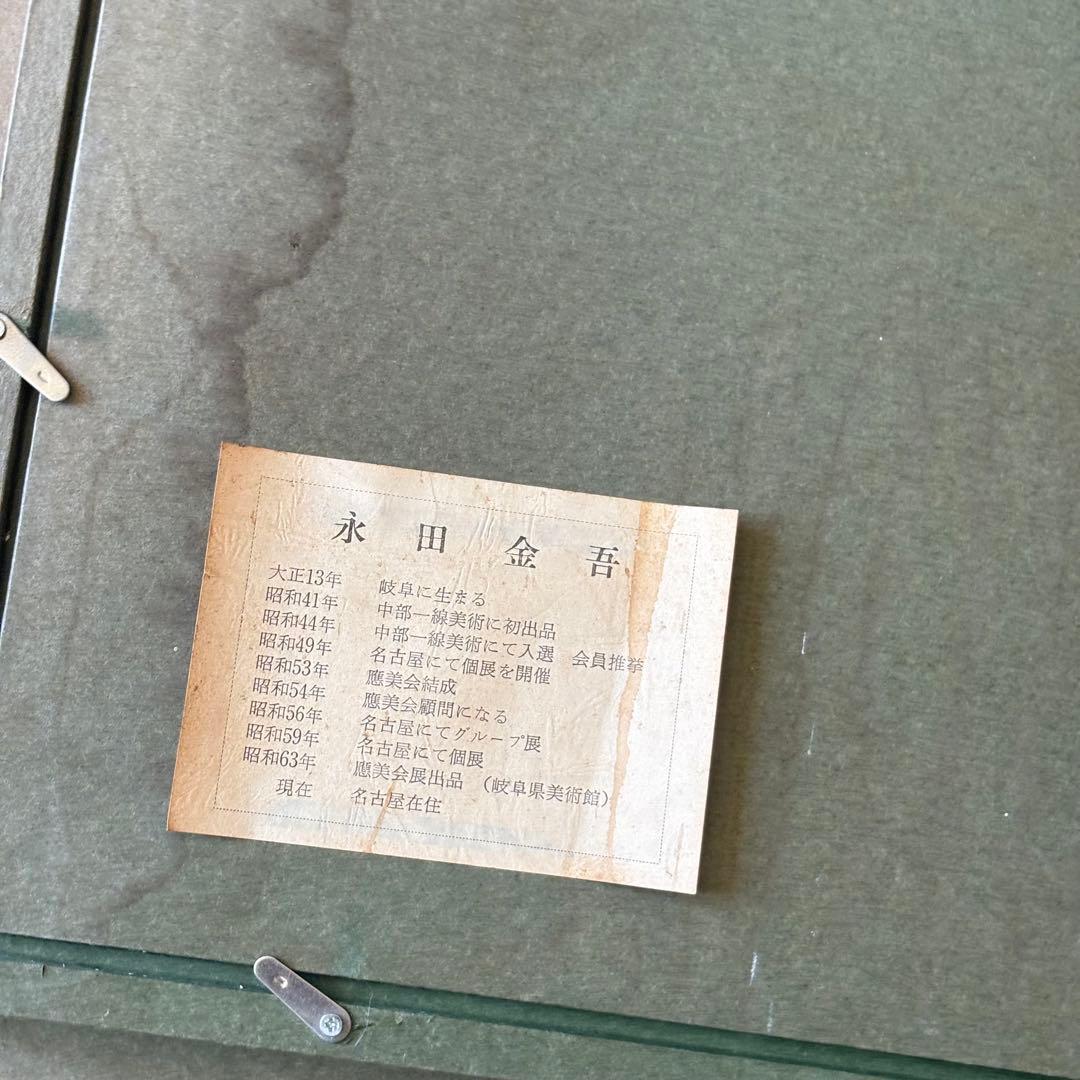 永田金吾
大正13年 岐阜に生まる
昭和41年 中部一線美術に初出品
昭和44年 中部一線美術にて入選 会員推挙
昭和49年 名古屋にて個展を開催
昭和53年 應美会結成
昭和54年 應美会顧問になる
昭和56年 名古屋にてグループ展
昭和59年 名古屋にて個展
昭和63年 應美会展出品 (岐阜県美術館)
現在 名古屋在住